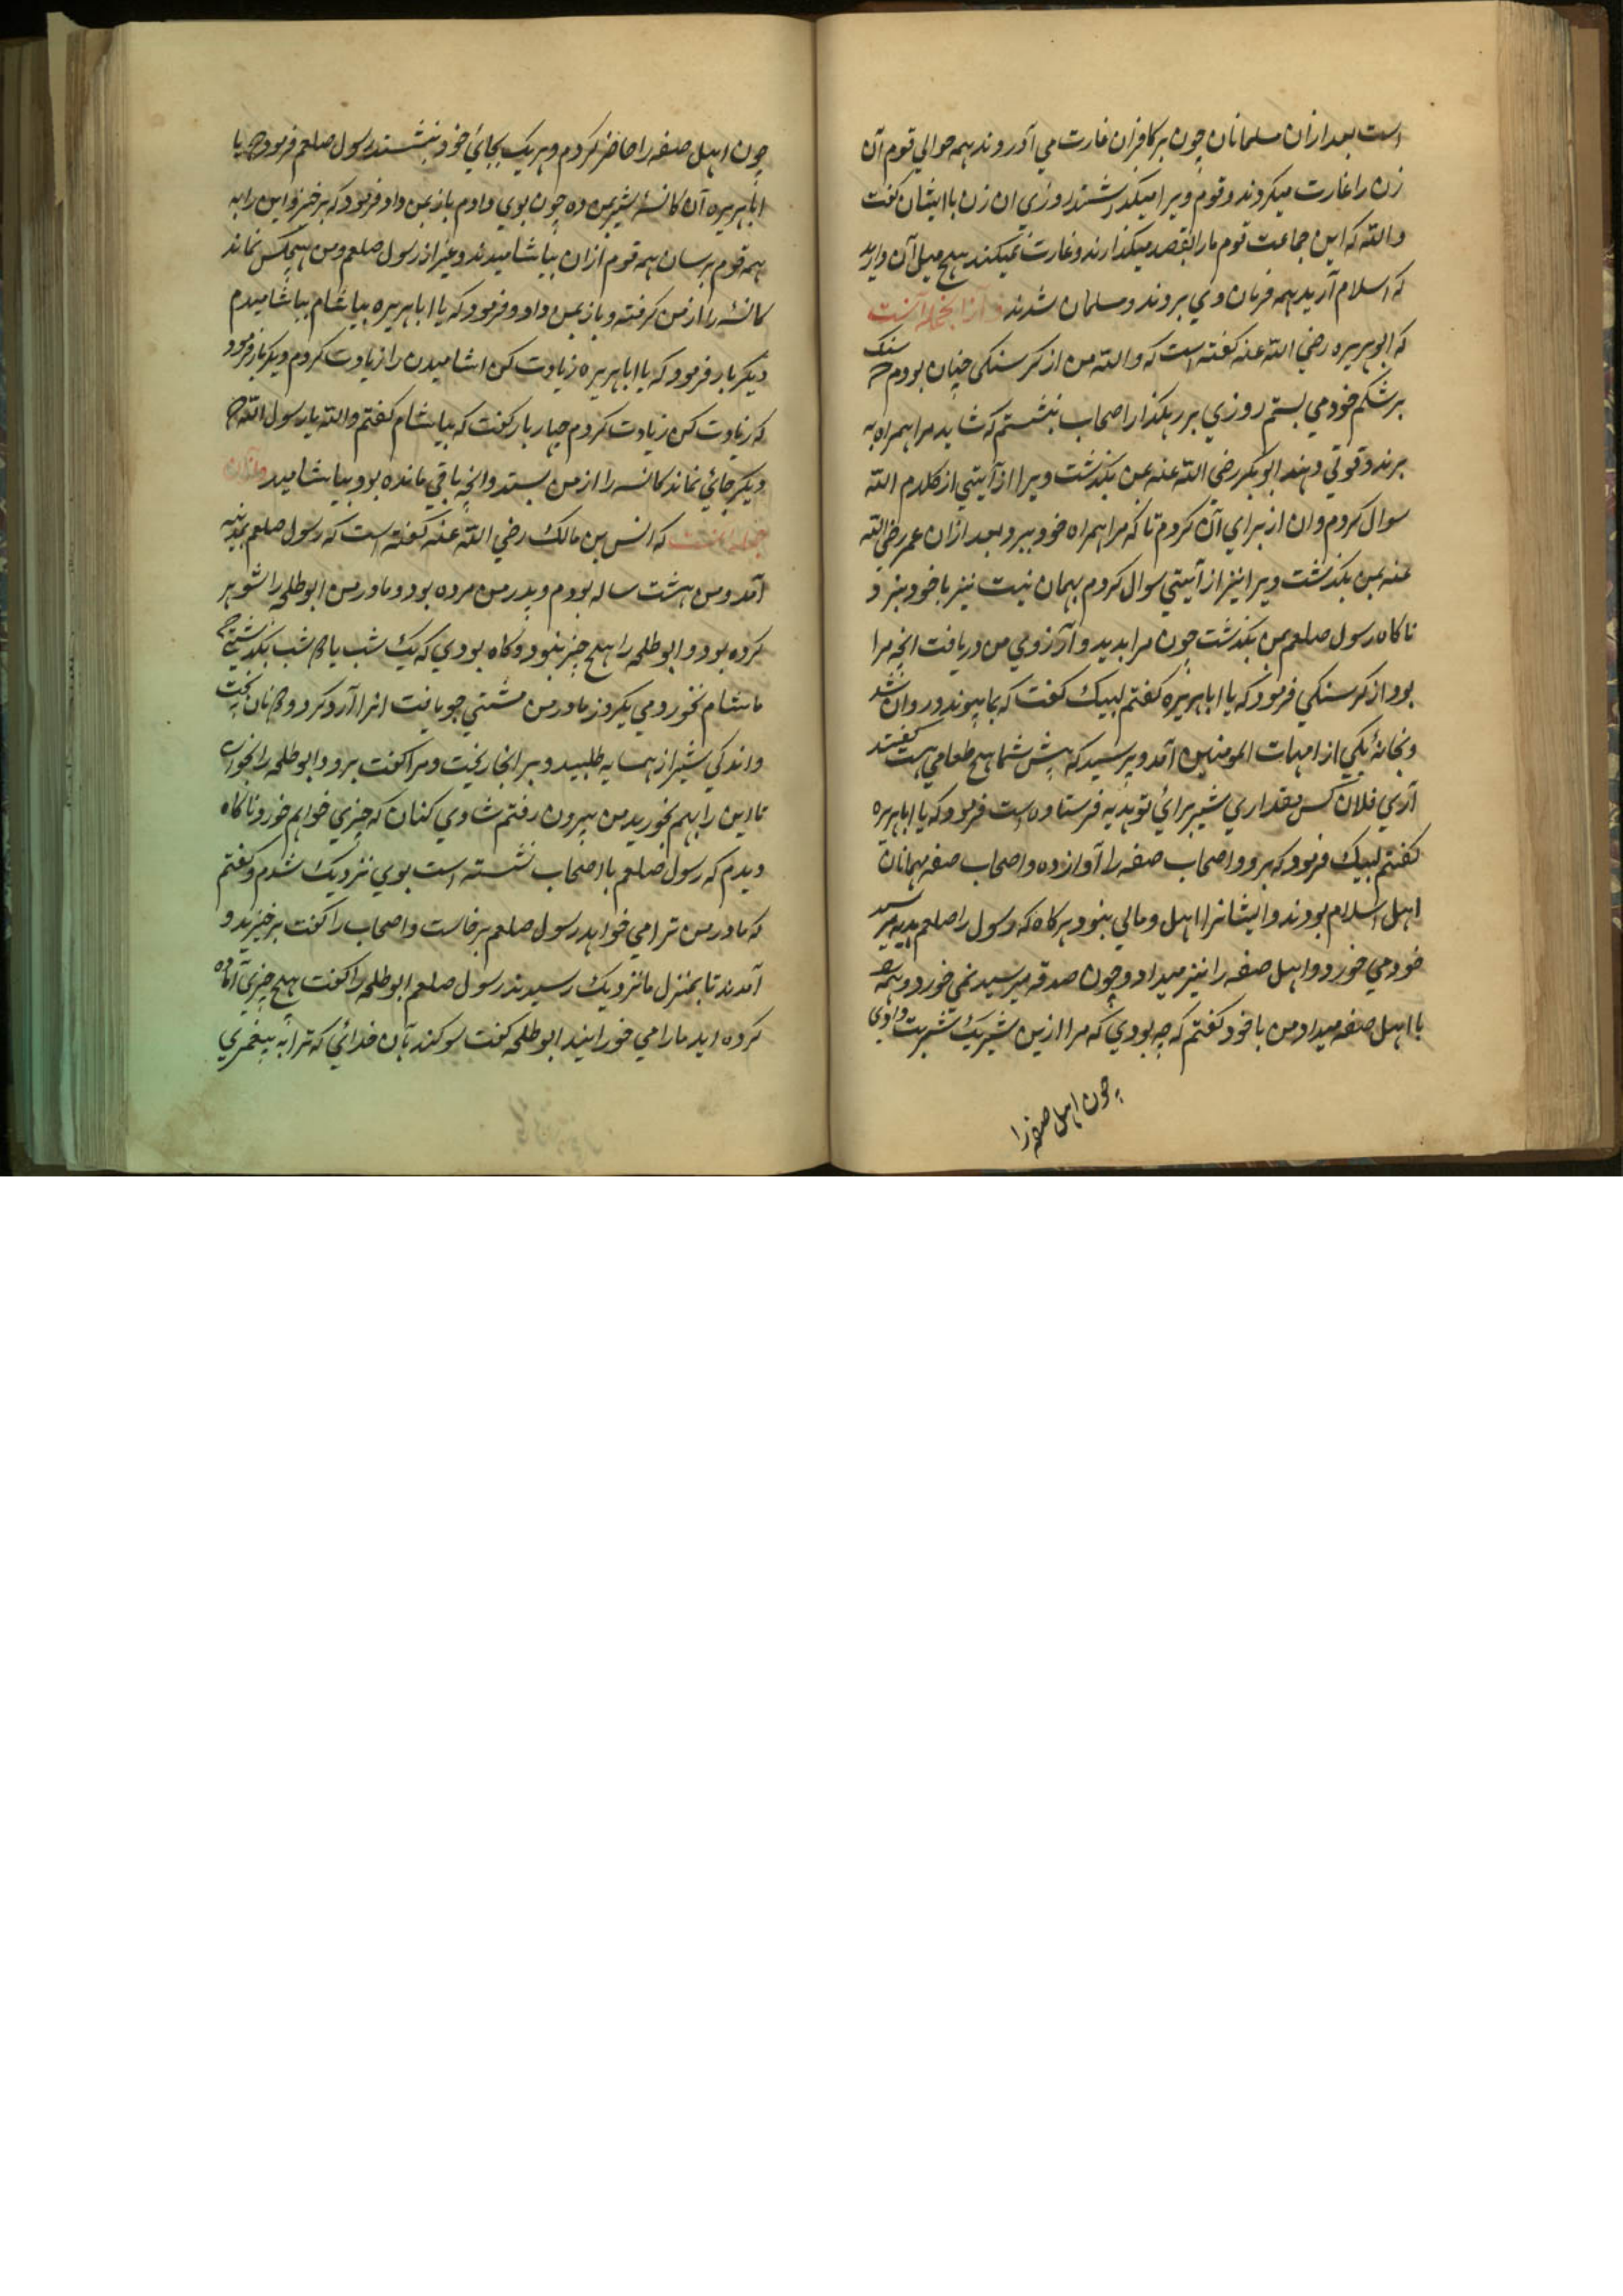 است بعد ازان مسلمانان چون بر کافران غارت می آوردند همه حوالی قوم آن
زن را غارت میکردند و قوم ویرا میگذاشتند روزی ان زن با ایشان کفت
والله که این جماعت قوم ما را بقصد میکذارند و غارت نمیکنند هیچ میل آن دارید
که اسلام آرید همه فرمان وی بردند و مسلمان شدند و از آنجمله آنست
که ابوهریره رضی الله عنه کفته است که والله من از کرسنکی چنان بودم که سنک
بر شکم خود می بستم روزی بر رهکذار اصحاب نشستم که شاید مرا همراه به
برند و قوتی دهند ابوبکر رضی الله عنه بمن بکذشت ویرا از آیتی از کلام الله
سوال کردم و ان از برای آن کردم تا که مرا همراه خود ببرد بعد ازان عمر رضی الله
عنه بمن بکذشت ویرا نیز از آیتی سوال کردم بهمان نیت نیز با خود نبرد
ناکاه رسول صلعم بمن بکذشت چون مرا بدید و آرزوی من دریافت انچه مرا
بود از کرسنکی فرمود که یا اباهریره کفتم لبیک کفت که بما پیوند در روان شد
و بخانهٔ یکی از امهات المومنین آمد و پرسید که پیش شما هیچ طعامی هست کفتند
آری فلان کس مقداری شیر برای تو هدیه فرستاده است فرمود که یا اباهریره
کفتم لبیک فرمود که برو و اصحاب صفه را آواز ده و اصحاب صفه مهمانان
اهل اسلام بودند و ایشانرا اهل و مالی نبود هرکاه که رسول را صلعم هدیه میرسید
خود می خورد و اهل صفه را نیز میداد و چون صدقه میرسید نمی خورد و همه
با اهل صفه میداد من با خود کفتم که چه بودی که مرا ازین شیر یک شربت دادی
چون اهل صفه را
چون اهل صفه را حاضر کردم و هر یک بجائی خود نشستند رسول صلعم فرمود که یا
اباهریره آن کاسهٔ شیر بمن ده چون بوی دادم باز بمن داد فرمود که برخیز و این را به
همه قوم برسان همه قوم ازان بیاشامیدند و غیر از رسول صلعم و من هیچکس نماند
کاسهٔ را از من کرفته و باز بمن داد و فرمود که یا اباهریره بیاشام بیاشامیدم
دیکر بار فرمود که یا اباهریره زیادت کن اشامیدن را زیادت کردم دیکر بار فرمود
که زیادت کن زیادت کردم چهار بار کفت که بیاشام کفتم والله یا رسول الله که
دیکر جائی نماند کاسه را از من بستد و انچه باقی مانده بود بیاشامید و ازان
جمله آنست که انس بن مالک رضی الله عنه کفته است که رسول صلعم بمدینه
آمد و من هشت ساله بودم و پدر من مرده بود و مادر من ابوطلحه را شوهر
کرده بود و ابوطلحه را هیچ چیز نبود و کاه بودی که یک شب یا دو شب بکذشتی که
ما شام نخوردمی یکروز مادر من مشتی جو یافت انرا آرد کرد و دو نان پخت
و اندکی شیر از همسایه طلبید و بر انجا ریخت و مرا کفت برو و ابوطلحه را بخوان
تا این را بهم بخورید من بیرون رفتم شادی کنان که چیزی خواهم خورد ناکاه
دیدم که رسول صلعم با اصحاب نشسته است بوی نزدیک شدم و کفتم
که مادر من ترا می خواهد رسول صلعم برخاست و اصحاب را کفت برخیزید و
آمدند تا بمنزل ما نزدیک رسیدند رسول صلعم ابوطلحه را کفت هیچ چیزی آماده
کرده اید ما را می خورانید ابوطلحه کفت سوکند بآن خدائی که ترا به پیغمبری